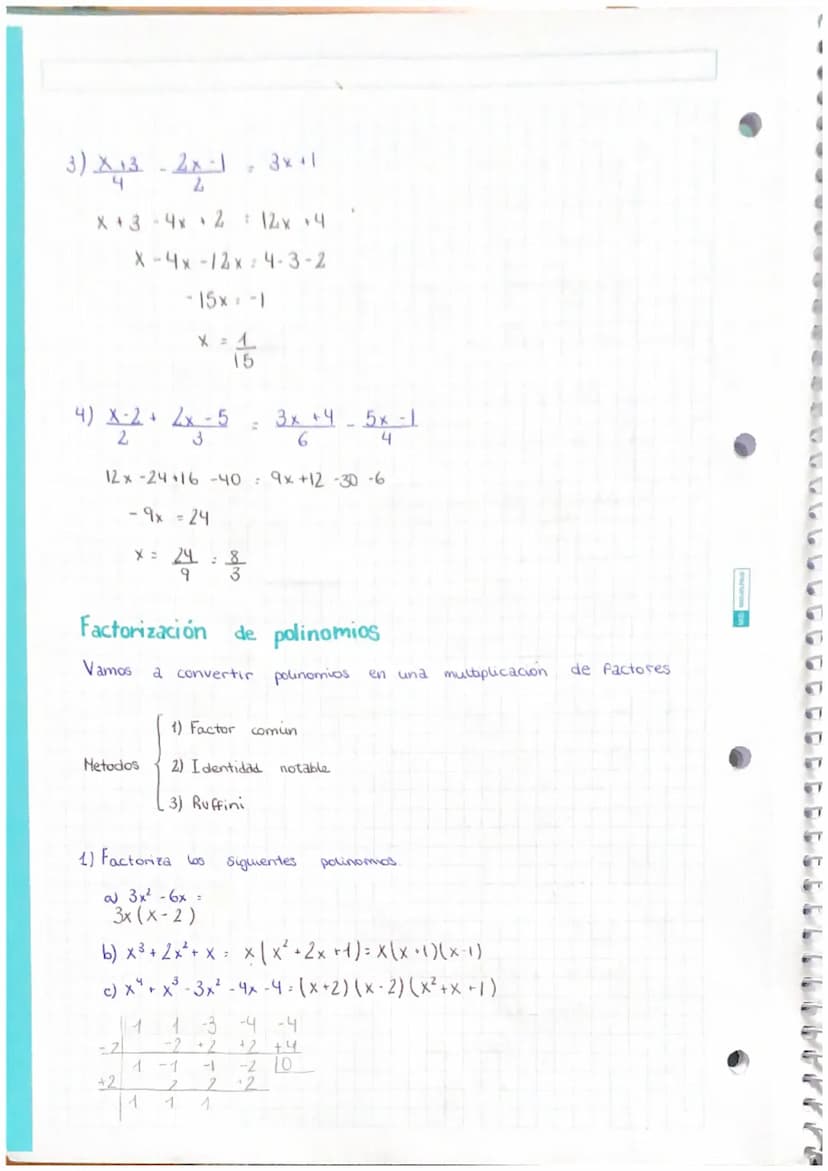 3) x+3/4 - 2x-1/2 = 3x+1
x + 3 - 4x + 2 = 12x + 4
x - 4x - 12x = 4 - 3 - 2
- 15x = -1
x = 1/15
4) x-2/2 + 2x-5/3 = 3x+4/6 - 5x-1/4
12x - 24 + 16 - 40 = 9x + 12 - 30 - 6
- 9x = 24
x = 24/9 = 8/3
Factorización de polinomios
Vamos a convertir polinomios en una multiplicación de factores
Metodos
1) Factor común
2) Identidad notable
3) Ruffini
1) Factoriza los siguientes polinomios.
a) 3x² - 6x =
3x(x-2)
b) x³ + 2x² + x = x(x² + 2x + 1) = x(x+1)(x-1)
c) x⁴ + x³ - 3x² - 4x - 4 = (x+2)(x-2)(x²+x+1)
1 1 -3 -4 -4
-2 -2 +2 +2 +4
1 -1 -1 -2 0
+2 2 2 +2
1 1 1